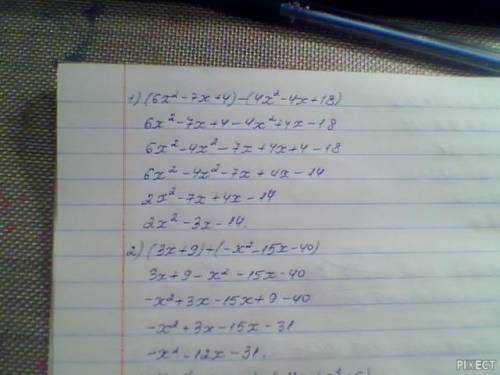 1) (6x²-7x+4)-(4x²-4x+18)
6x²-7x+4-4x²+4x-18
6x²-4x²-7x+4x+4-18
6x²-4x²-7x+4x-14
2x²-7x+4x-14
2x²-3x-14.
2) (3x+9)+(-x²-15x-40)
3x+9-x²-15x-40
-x²+3x-15x+9-40
-x²+3x-15x-31
-x²-12x-31.
PIXECT